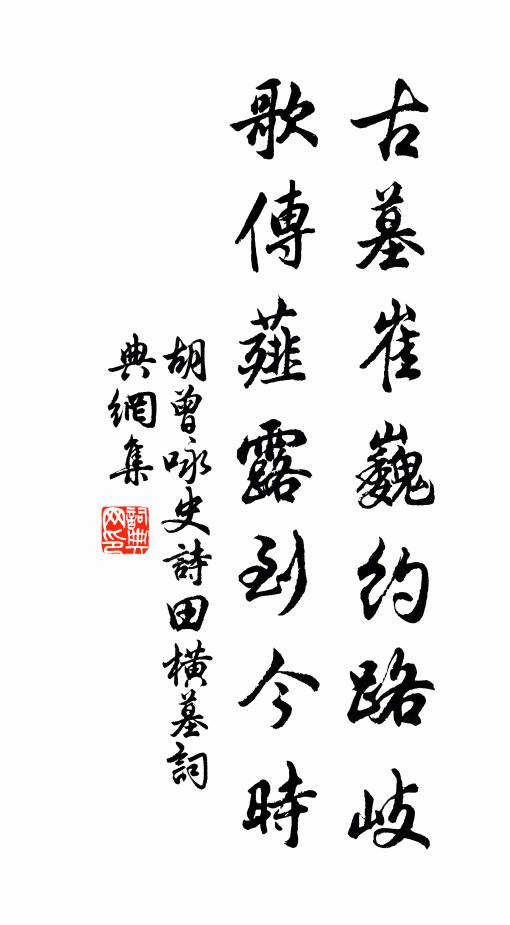 古墓崔巍約路岐
歌傳薤露到今時
胡曾咏史詩田橫墓詞
典網集
詞典
网印